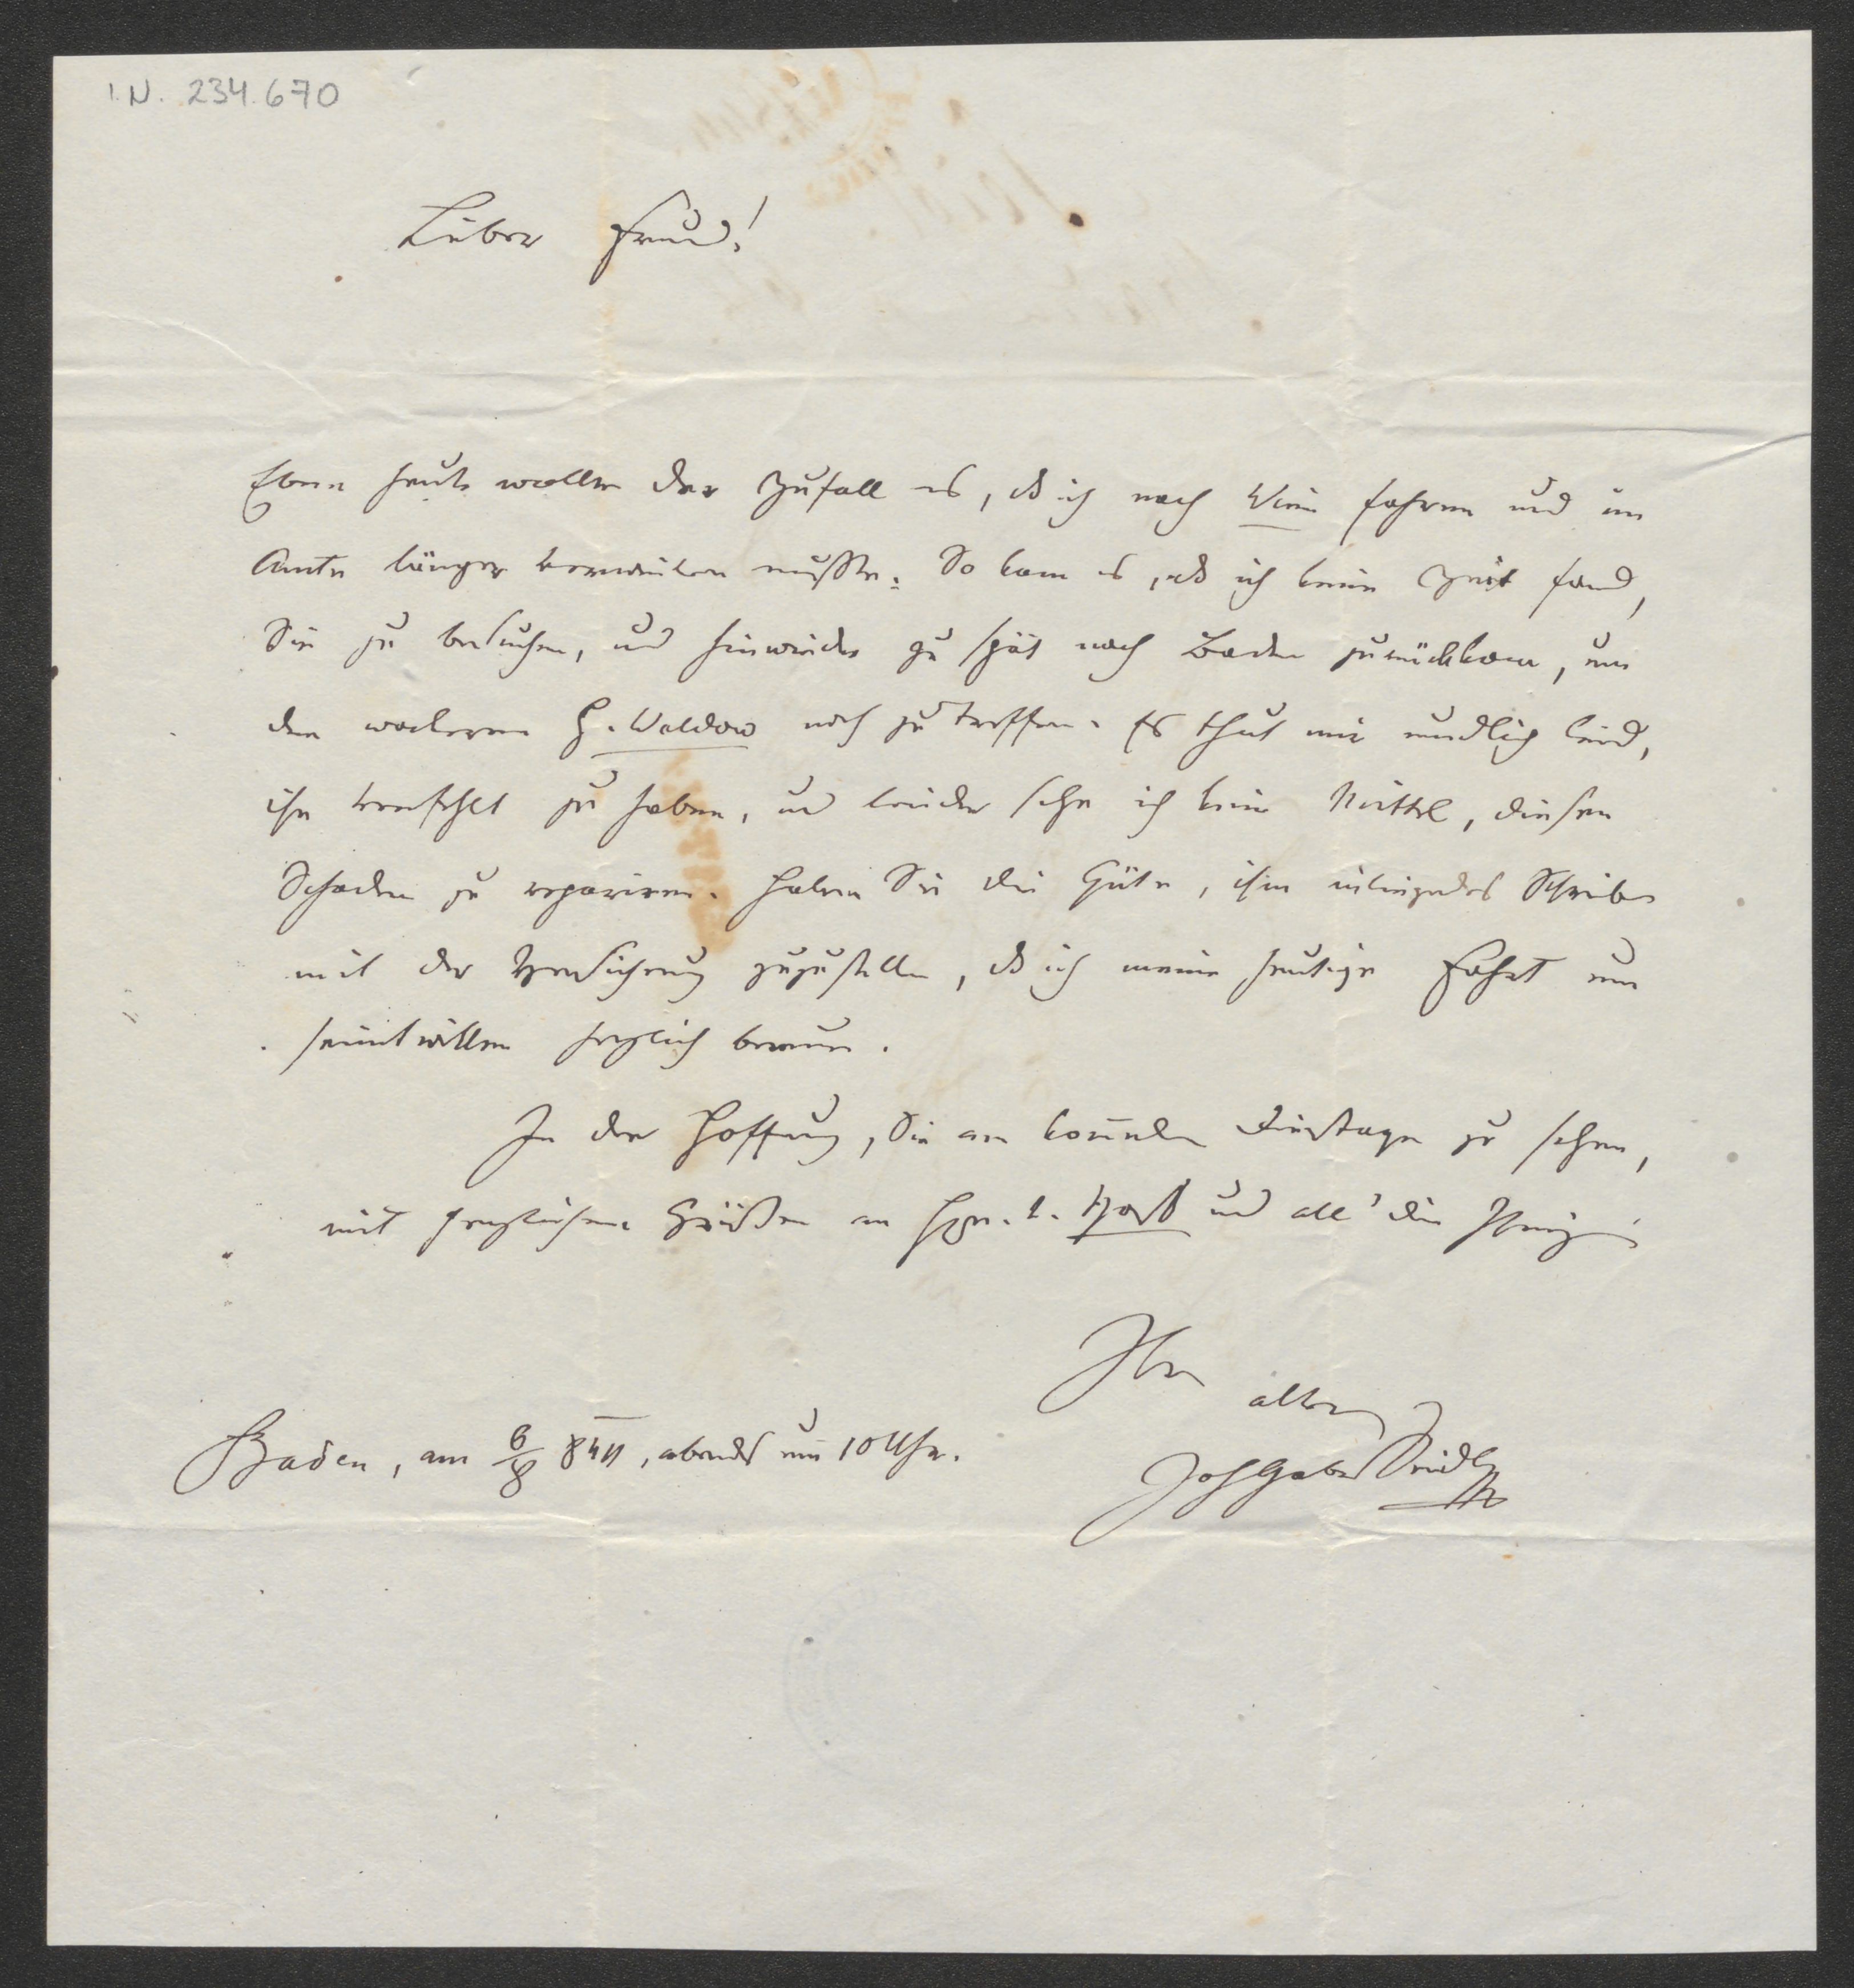 I.N. 234.670
Lieber Freund!
Eben heute wollte der Zufall es, dß ich nach Wien fahren und im
Amte länger verweilen mußte. So kam es, dß ich keine Zeit fand,
Sie zu besuchen, und hinwieder zu spät nach Baden zurückkam, um
den wackeren H. Waldow noch zu treffen. Es thut mir endlich leid,
ihn verfehlt zu haben, und leider sehe ich kein Mittel, diesen
Schaden zu repariren. Haben Sie die Güte, ihm inliegendes Schreiben
mit der Versicherung zuzustellen, dß ich meine heutige Fahrt um
seinetwillen herzlich bereue.
In der Hoffnung, Sie am kom̄enden Dienstage zu sehen,
mit herzlichen Grüßen an und all' die Ihrigen
Ihr
alter
Joh Gab Seidl
Baden, am 6/8 844, abends um 10 Uhr.